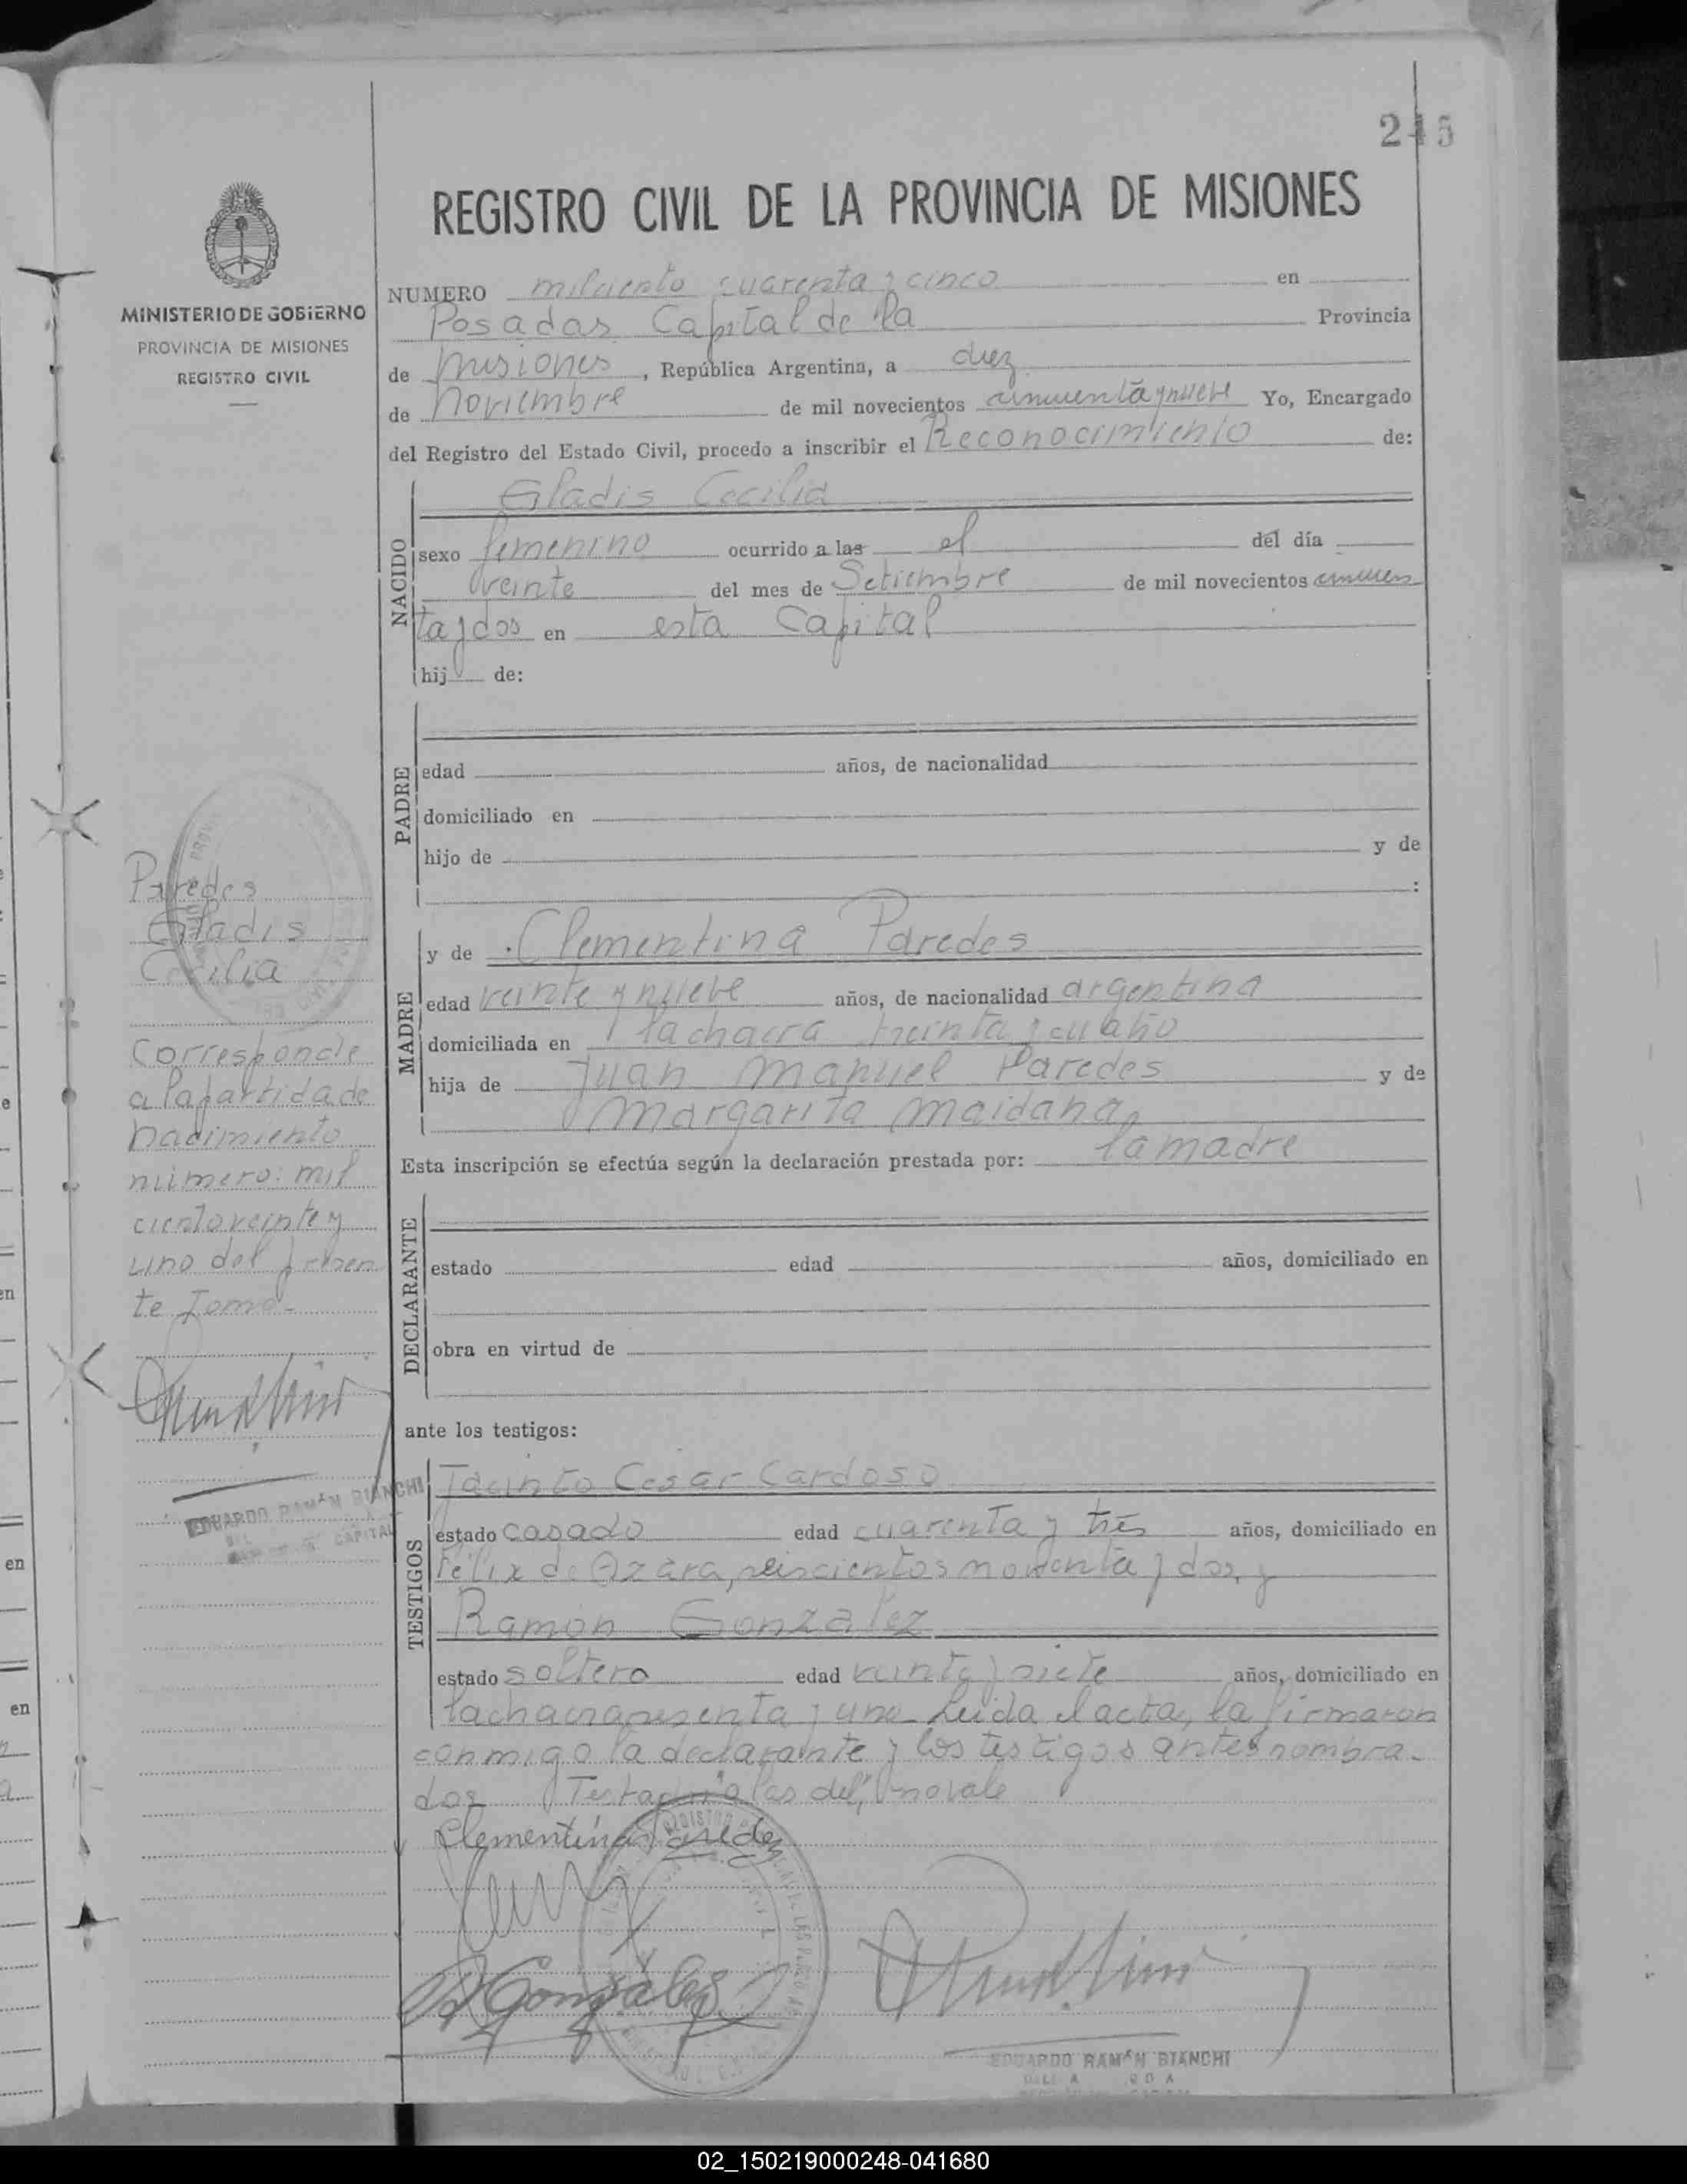 245
REGISTRO CIVIL DE LA PROVINCIA DE MISIONES
MINISTERIO DE GOBIERNO
PROVINCIA DE MISIONES
REGISTRO CIVIL
NUMERO milciento cuarenta y cinco en
Posadas Capital de la Provincia
de Misiones, República Argentina, a diez
de Noviembre de mil novecientos cincuenta y nueve Yo, Encargado
del Registro del Estado Civil, procedo a inscribir el Reconocimiento de:
NACIDO
Gladis Cecilia
sexo femenino ocurrido a las el del día
veinte del mes de Setiembre de mil novecientos cincuen
ta y dos en esta Capital
hij de:
PADRE
edad años, de nacionalidad
domiciliado en
hijo de y de
:
MADRE
y de Clementina Paredes
edad veinte y nueve años, de nacionalidad argentina
domiciliada en la chacra treinta y cuatro
hija de Juan Manuel Paredes y de
Margarita Maidana
Esta inscripción se efectúa según la declaración prestada por: la madre
DECLARANTE
estado edad años, domiciliado en
obra en virtud de
ante los testigos:
TESTIGOS
Jacinto Cesar Cardoso
estado casado edad cuarenta y tres años, domiciliado en
Félix de Azara, seiscientos noventa y dos, y
Ramón González
estado soltero edad veinte y siete años, domiciliado en
la chacra sesenta y uno Leida el acta, la firmaron
conmigo la declarante y los testigos antes nombra-
dos Testado "a las del" no vale
Clementina Paredes
González
EDUARDO RAMÓN BIANCHI
Paredes
Gladis
Cecilia
Corresponde
a la partida de
nacimiento
número: mil
ciento veinte y
uno del presen
te Tomo-
EDUARDO RAMÓN BIANCHI
CAPITAL
02_150219000248-041680